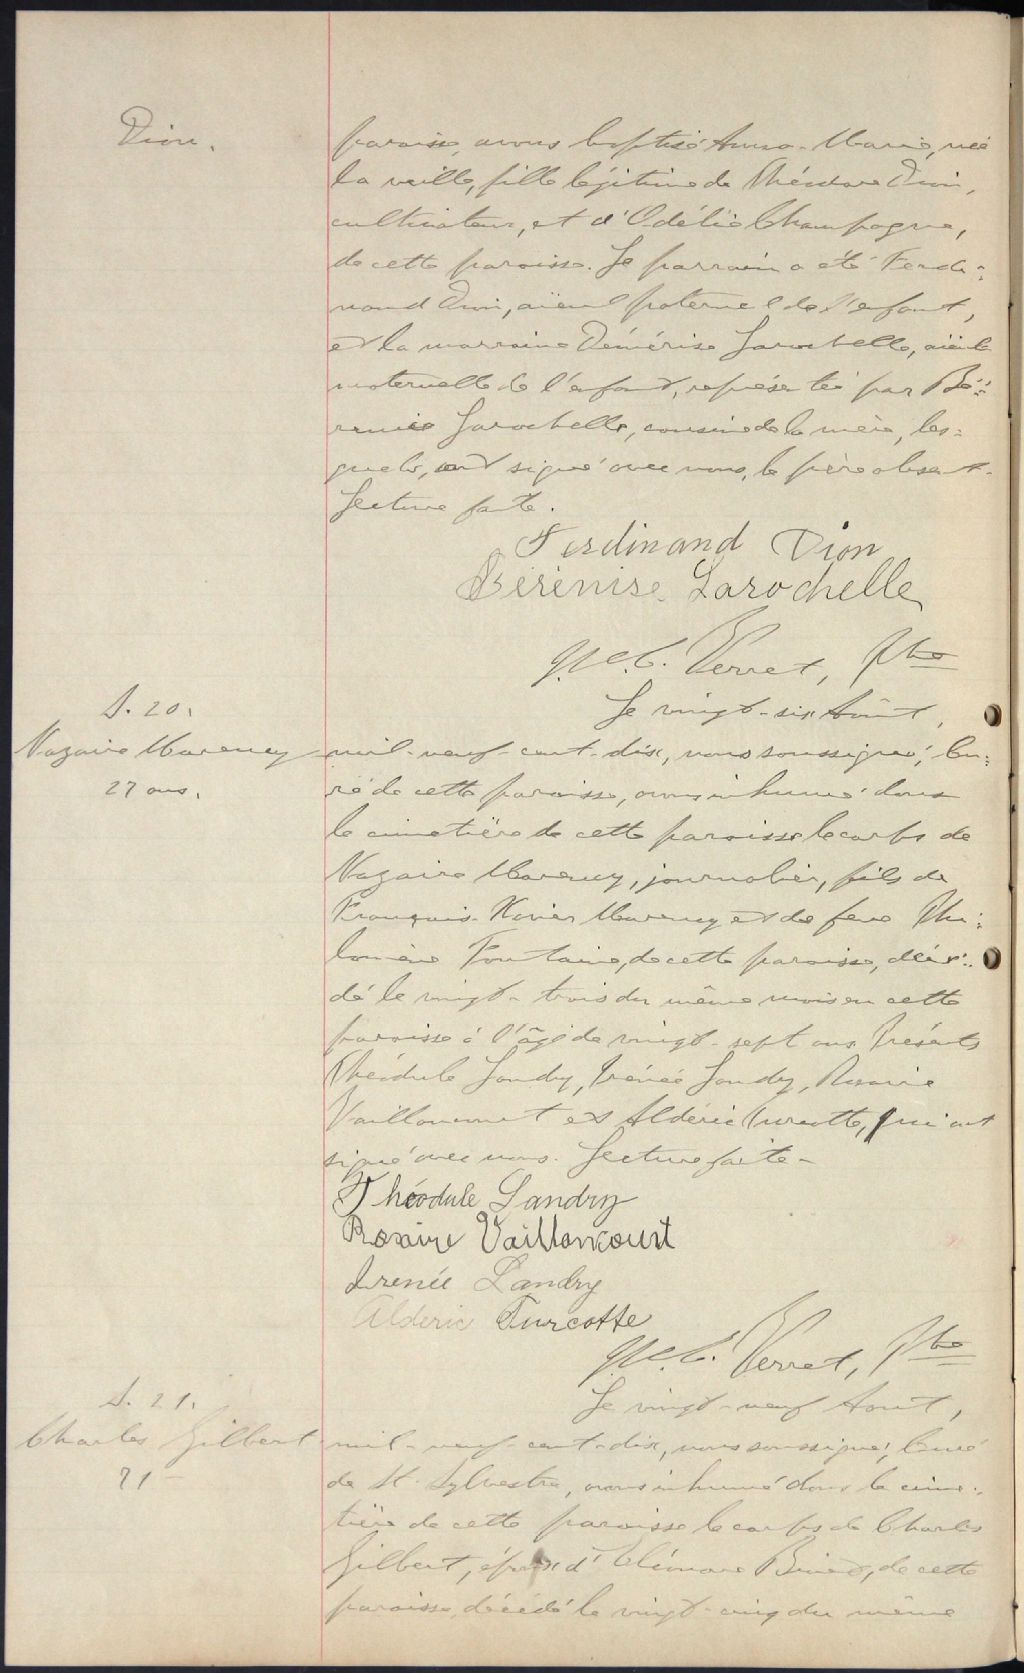 Dion.
paroisse, avons baptisé Anna-Marie, née
la veille, fille légitime de Théodore Dion,
cultivateur, et d'Odélie Champagne,
de cette paroisse. Le parrain a été Ferdi-
nand Dion, aïeul paternel de l'enfant,
et la marraine Démérise Larochelle, aïeule
maternelle de l'enfant, représentée par Bé-
renise Larochelle, cousine de la mère, les-
quels, ont signé avec nous, le père absent.
Lecture faite.
Ferdinand Dion
Bérénise Larochelle
Verret, Ptre
S. 20.
Nazaire Marcoux
27 ans.
Le vingt-six Août,
mil-neuf-cent-dix, nous soussigné, Cu-
ré de cette paroisse, avons inhumé dans
le cimetière de cette paroisse le corps de
Nazaire, journalier, fils de
François-Xavier et de feue Phi-
lomène Fontaine, de cette paroisse, décé-
dé le vingt-trois du même mois en cette
paroisse à l'âge de vingt-sept ans. Présents
Théodule Landry, Irénée Landry, Rosaire
Vaillancourt et Aldéric Turcotte, qui ont
signé avec nous. Lecture faite-
Théodule Landry
Rosaire Vaillancourt
Irenée Landry
Alderic Turcotte
Verret, Ptre
S. 21.
Charles Gilbert
71
Le vingt-neuf Août,
mil-neuf-cent-dix, nous soussigné, Curé
de St-Sylvestre, avons inhumé dans le cime-
tière de cette paroisse le corps de Charles
Gilbert, époux d'Eléonore Binet, de cette
paroisse, décédé le vingt-cinq du même